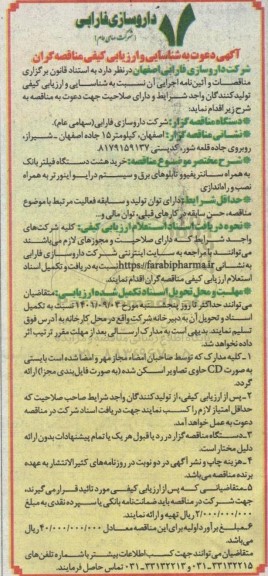 داروسازی فارابی
(شرکت سهامی عام)
آگهی دعوت به شناسایی و ارزیابی کیفی مناقصه گران
شرکت داروسازی فارابی اصفهان در نظر دارد به استناد قانون برگزاری
مناقصات و آئین‌نامه اجرایی آن نسبت به شناسایی و ارزیابی کیفی
تولیدکنندگان واجد شرایط و دارای صلاحیت جهت دعوت به مناقصه به
شرح زیر اقدام نماید:
دستگاه مناقصه گزار: شرکت داروسازی فارابی (سهامی عام).
نشانی مناقصه گزار: اصفهان، کیلومتر ۱۵ جاده اصفهان - شیراز،
روبروی جاده قلعه شور، کدپستی ۸۱۷۹۱۵۹۱۳۷
شرح مختصر موضوع مناقصه: خرید هشت دستگاه فیلتر بانک
به همراه سانتریفیوژ تابلوهای برق و سیستم درایو اینورتر به همراه
نصب و راه‌اندازی
حداقل شرایط: دارای توان تولید و سابقه فعالیت مرتبط با موضوع
مناقصه، حسن سابقه در کارهای قبلی، توان مالی و...
نحوه دریافت اسناد استعلام ارزیابی کیفی: کلیه شرکت‌های
واجد شرایط که دارای صلاحیت و مجوزهای لازم می‌باشند
می‌توانند با مراجعه به سایت اینترنتی شرکت داروسازی فارابی
به نشانی https://farabipharma.ir نسبت به دریافت و تکمیل اسناد
استعلام ارزیابی کیفی مناقصه گران اقدام نمایند.
مهلت و محل تحویل اسناد تکمیل شده ارزیابی: متقاضیان
می‌توانند حداکثر تا روز پنجشنبه مورخ ۱۴۰۱/۰۹/۰۳ نسبت به تکمیل
اسناد و تحویل آن به دبیرخانه شرکت واقع در محل کارخانه به آدرس فوق
تسلیم نمایند. بدیهی است به مدارک ارسالی بعد از مهلت مقرر ترتیب اثر
داده نخواهد شد.
۱- کلیه مدارک که توسط صاحبان امضاء مجاز مهر و امضا شده است بایستی
به صورت CD حاوی تصاویر اسکن شده (به صورت فایل‌بندی مجزا) ارائه
گردد.
۲- پس از ارزیابی کیفی، از تولیدکنندگان واجد شرایط صاحب صلاحیت که
حداقل امتیاز لازم را کسب نمایند جهت دریافت اسناد شرکت در مناقصه
دعوت به عمل خواهد آمد.
۳- دستگاه مناقصه گزار در رد یا قبول هر یک یا تمام پیشنهادات بدون ارائه
دلیل مختار است.
۴- هزینه چاپ و نشر آگهی در دو نوبت در روزنامه‌های کثیرالانتشار به عهده
برنده مناقصه می‌باشد.
۵- متقاضیانی که پس از ارزیابی کیفی مورد تائید قرار می‌گیرند،
جهت شرکت در مناقصه باید ضمانت‌نامه بانکی یا سپرده نقدی به مبلغ
۲/۰۰۰/۰۰۰/۰۰۰ ریال تهیه و ارائه نمایند.
۶- مبلغ برآورد اولیه برای این مناقصه معادل ۴۰/۰۰۰/۰۰۰/۰۰۰ ریال
می‌باشد.
متقاضیان می‌توانند جهت کسب اطلاعات بیشتر با شماره تلفن‌های
۰۳۱-۳۳۱۳۲۲۱۵ و ۰۳۱-۳۳۱۳۲۲۱۳ تماس حاصل فرمایند.